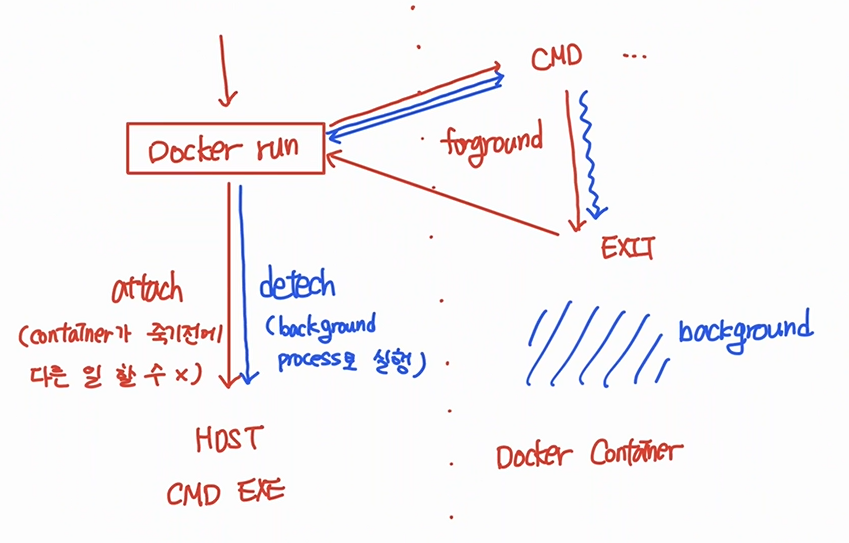 CMD ...
Docker run
forground
EXIT
attach
(container가 죽기전에
다른 일 할 수 x)
detech
(background
process로 실행)
background
HOST
CMD EXE
Docker Container